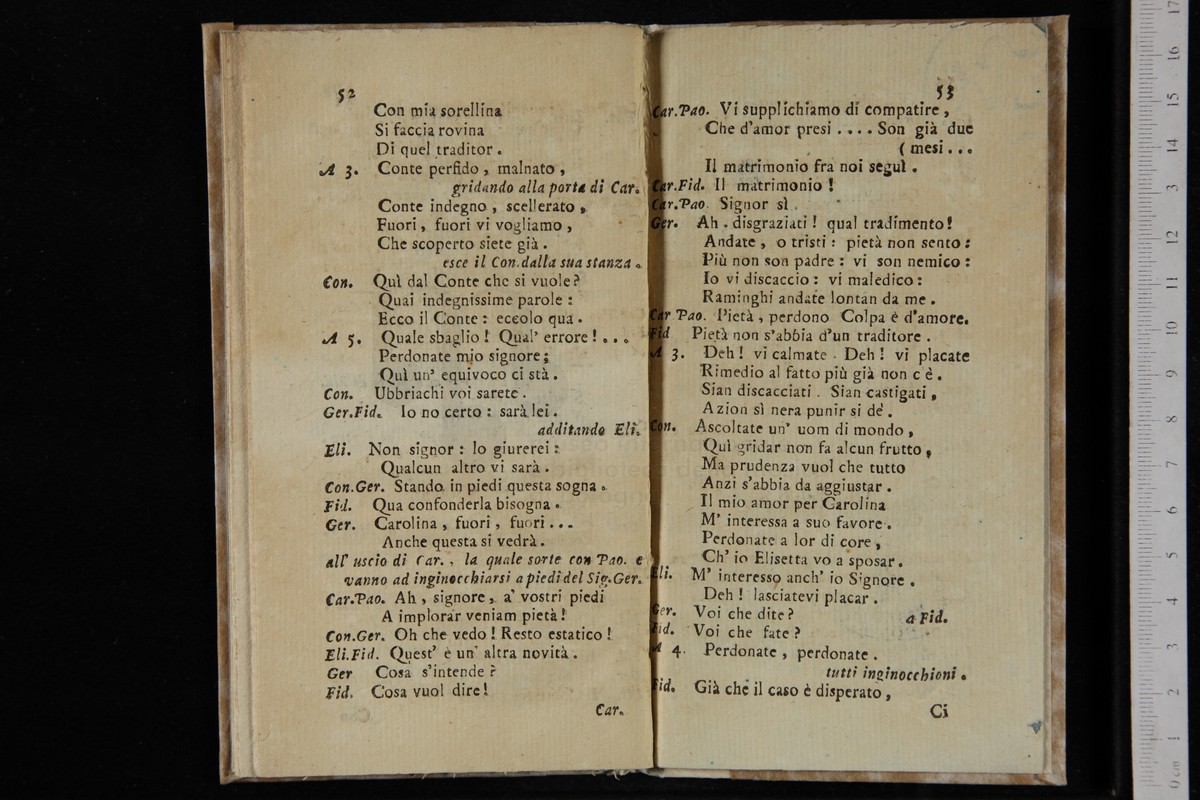 52
Con mia sorellina
Si faccia rovina
Di quel traditor.
A 3. Conte perfido, malnato,
gridando alla porta di Car.
Conte indegno, scellerato,
Fuori, fuori vi vogliamo,
Che scoperto siete già.
esce il Con. dalla sua stanza.
Con. Quì dal Conte che si vuole?
Quai indegnissime parole:
Ecco il Conte: eccolo qua.
A 5. Quale sbaglio! Qual' errore!...
Perdonate mio signore;
Quì un' equivoco ci stà.
Con. Ubbriachi voi sarete.
Ger.Fid. Io no certo: sarà lei.
additando Eli.
Eli. Non signor: lo giurerei:
Qualcun altro vi sarà.
Con.Ger. Stando in piedi questa sogna.
Fid. Qua confonderla bisogna.
Ger. Carolina, fuori, fuori...
Anche questa si vedrà.
all' uscio di Car., la quale sorte con Pao. e
vanno ad inginocchiarsi a piedi del Sig.Ger.
Car.Pao. Ah, signore, a' vostri piedi
A implorar veniam pietà!
Con.Ger. Oh che vedo! Resto estatico!
Eli.Fid. Quest' è un' altra novità.
Ger Cosa s'intende?
Fid. Cosa vuol dire!
Car.
53
Car.Pao. Vi supplichiamo di compatire,
Che d'amor presi.... Son già due
(mesi...
Il matrimonio fra noi seguì.
Car.Fid. Il matrimonio!
Car.Pao. Signor sì.
Ger. Ah. disgraziati! qual tradimento!
Andate, o tristi: pietà non sento:
Più non son padre: vi son nemico:
Io vi discaccio: vi maledico:
Raminghi andate lontan da me.
Car Pao. Pietà, perdono Colpa è d'amore.
Fid Pietà non s'abbia d'un traditore.
A 3. Deh! vi calmate. Deh! vi placate
Rimedio al fatto più già non c'è.
Sian discacciati. Sian castigati,
Azion sì nera punir si dé.
Con. Ascoltate un' uom di mondo,
Quì gridar non fa alcun frutto,
Ma prudenza vuol che tutto
Anzi s'abbia da aggiustar.
Il mio amor per Carolina
M' interessa a suo favore.
Perdonate a lor di core,
Ch' io Elisetta vo a sposar.
Eli. M' interesso anch' io Signore.
Deh! lasciatevi placar.
Ger. Voi che dite? a Fid.
Fid. Voi che fate?
A 4. Perdonate, perdonate.
tutti inginocchioni.
Fid. Già che il caso è disperato,
Ci